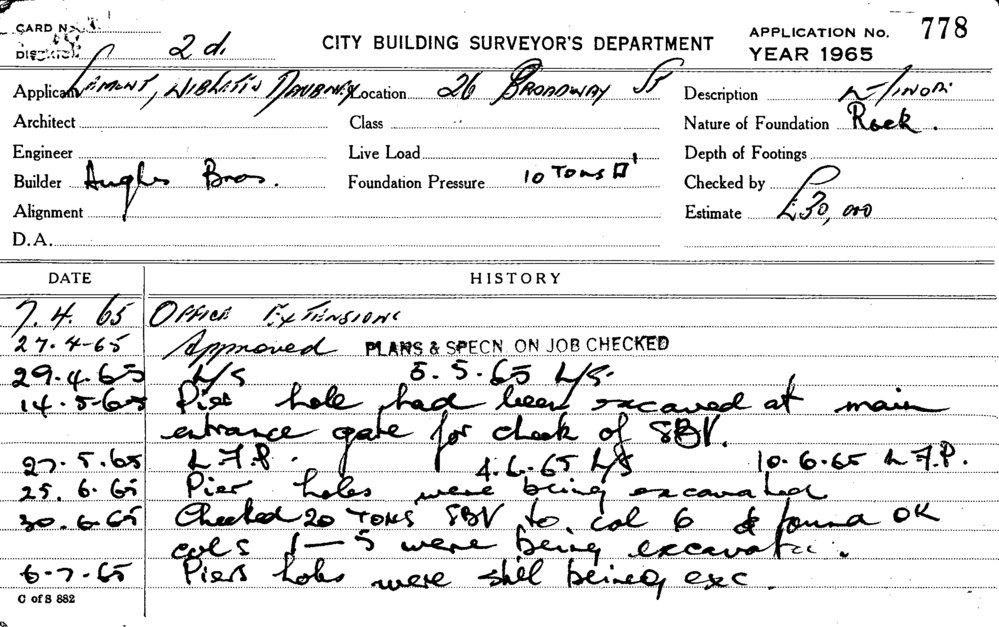 CARD No. CITY BUILDING SURVEYOR'S DEPARTMENT APPLICATION No. 778
DISTRICT 2 d. YEAR 1965
Applicant Location 26 BROADWAY ST Description MINOR
Architect Class Nature of Foundation Rock.
Engineer Live Load Depth of Footings
Builder Bros. Foundation Pressure 10 TONS □' Checked by
Alignment Estimate £30,000
D.A.
DATE HISTORY
7.4.65 OFFICE EXTENSIONS
27-4-65 Approved PLANS & SPECN. ON JOB CHECKED
29.4.65 L/S 5.5.65 L/S.
14.5-65 Pier hole had been excaved at main
entrance gate for check of SBV.
27.5.65 L.F.P. 4.6.65 L/S 10.6.65 L.F.P.
25.6.65 Pier holes were being excavated
30.6.65 Checked 20 TONS SBV to col 6 & found OK
cols 1—5 were being
6-7-65 Piers holes were still being exc.
C of S 882